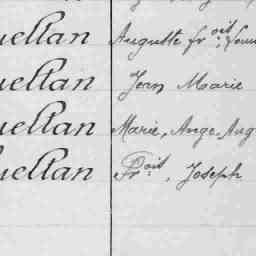 uellan Auguste fr oit
uellan Jean Marie
uellan Marie, Ange, Aug
uellan Fr oit, Joseph